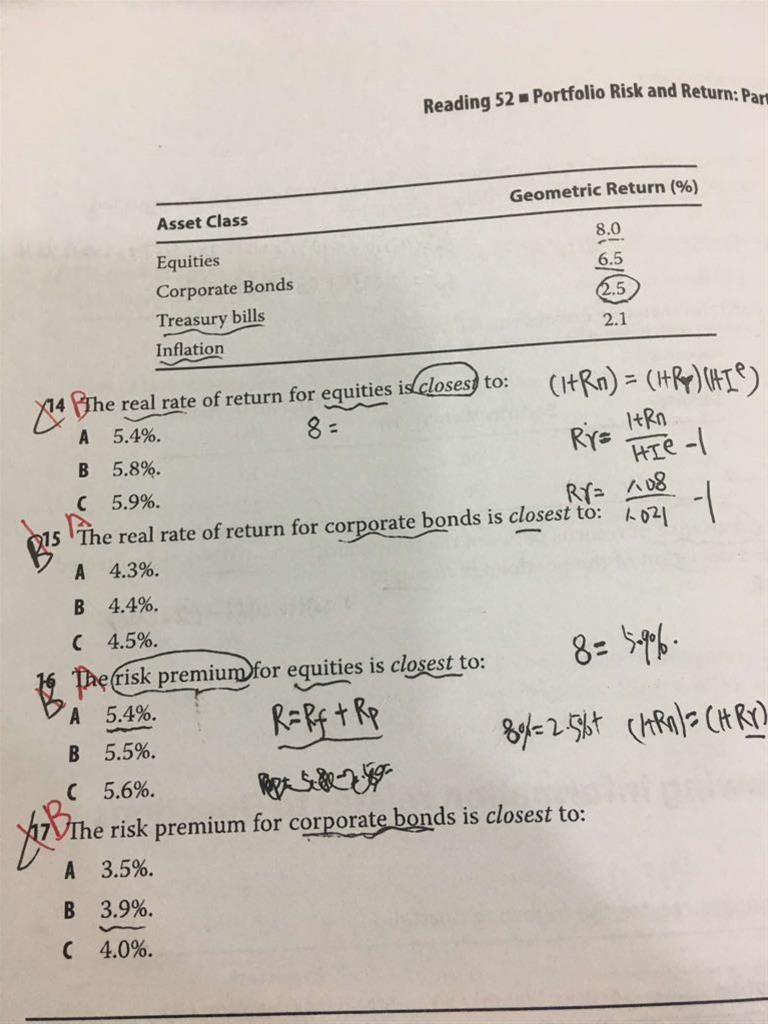 Reading 52 ■ Portfolio Risk and Return: Part
Asset Class Geometric Return (%)
Equities 8.0
Corporate Bonds 6.5
Treasury bills 2.5
Inflation 2.1
14 B The real rate of return for equities is closest to:
(1+Rn) = (1+Rr)(1+Iᵉ)
A 5.4%.
8 =
Rr = 1+Rn / 1+Iᵉ -1
B 5.8%.
C 5.9%.
Rr = 1.08 / 1.021 -1
15 A The real rate of return for corporate bonds is closest to:
B
A 4.3%.
B 4.4%.
C 4.5%.
8 = 5.9%.
16 A The risk premium for equities is closest to:
B
A 5.4%.
R = Rf + Rp
8% = 2.5% + (1+Rn) = (1+Rr)
B 5.5%.
C 5.6%.
17 B The risk premium for corporate bonds is closest to:
A 3.5%.
B 3.9%.
C 4.0%.